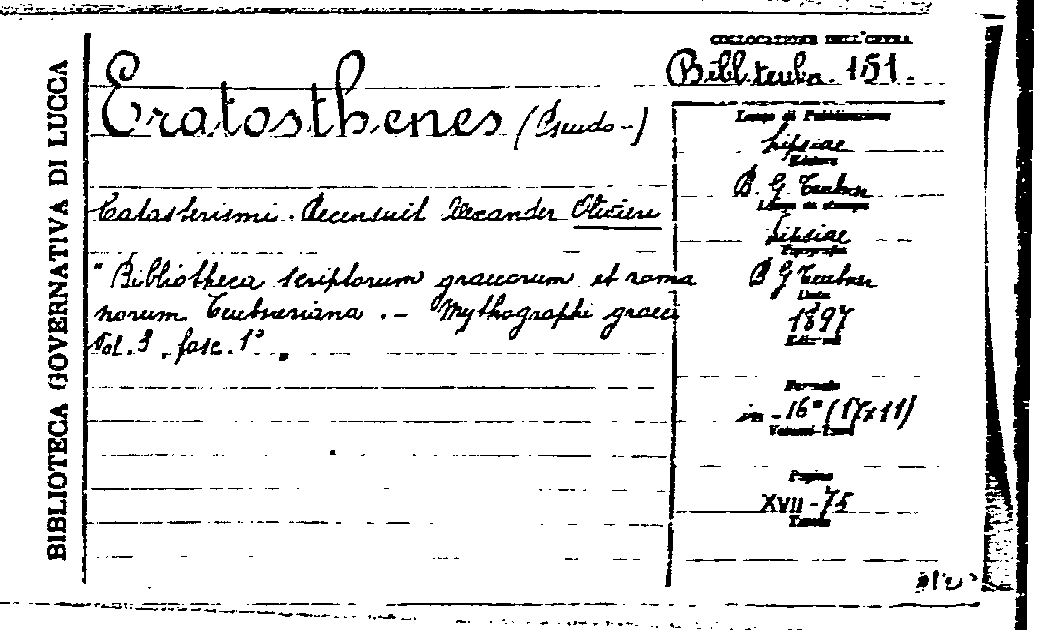 BIBLIOTECA GOVERNATIVA DI LUCCA
COLLOCAZIONE DELL'OPERA
Bibl. teubn. 151.
Eratosthenes (Pseudo-)
Catasterismi. Recensuit Alexander Olivieri
"Bibliotheca scriptorum graecorum et roma
norum Teubneriana. – Mythographi graeci
Vol. 3, fasc. 1°"
Luogo di Pubblicazione
Lipsiae
Editore
B. G Teubner
Luogo di stampa
Lipsiae
Tipografia
B G Teubner
Data
1897
Formato
in-16° (17x11)
Pagine
XVII-75
Tavole